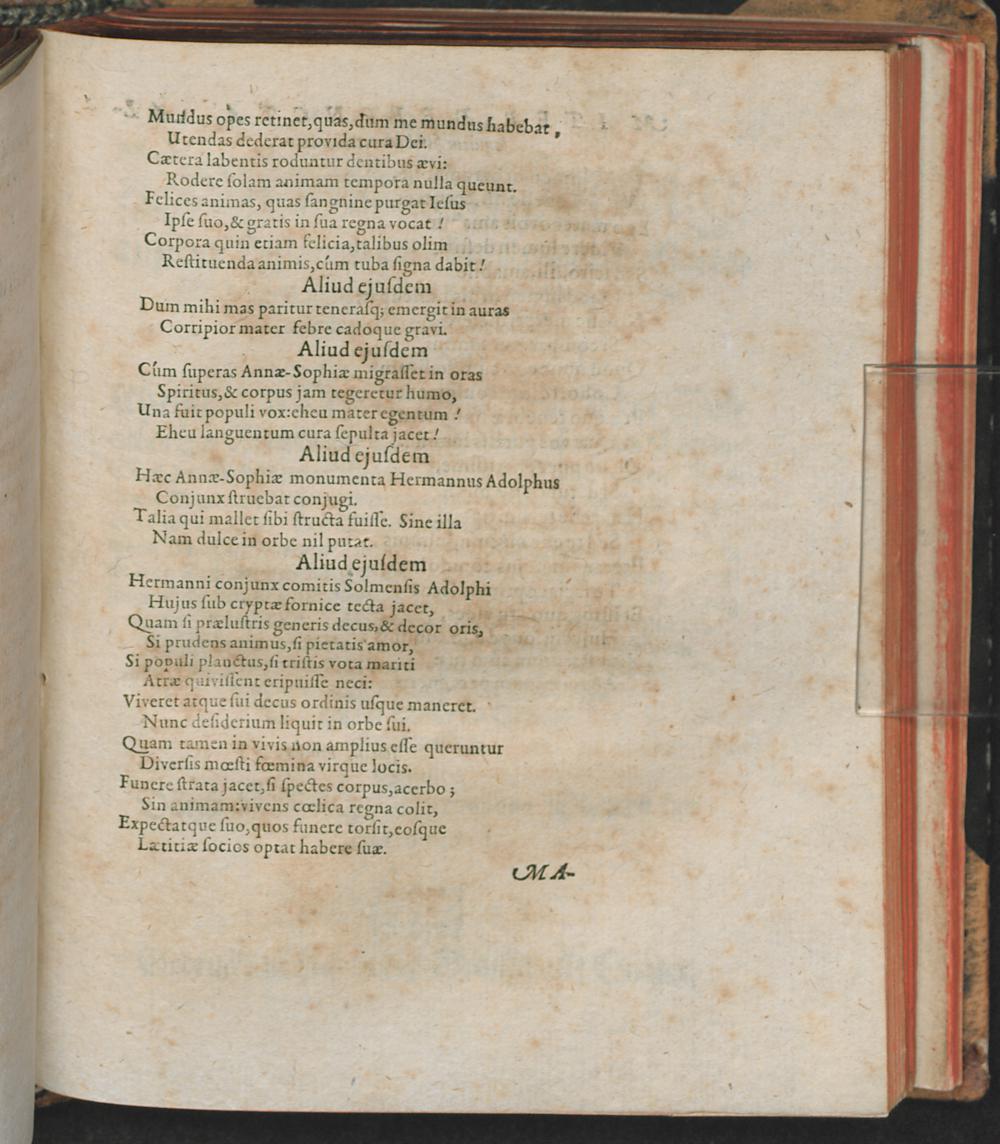 Mundus opes retinet,quas,dum me mundus habebat,
Utendas dederat provida cura Dei.
Cætera labentis roduntur dentibus ævi:
Rodere ſolam animam tempora nulla queunt.
Felices animas, quas ſangnine purgat Ieſus
Ipſe ſuo,& gratis in ſua regna vocat!
Corpora quin etiam felicia,talibus olim
Reſtituenda animis,cúm tuba ſigna dabit!
Aliud ejuſdem
Dum mihi mas paritur teneraſq; emergit in auras
Corripior mater febre cadoque gravi.
Aliud ejuſdem
Cúm ſuperas Annæ-Sophiæ migraſſet in oras
Spiritus,& corpus jam tegeretur humo,
Una fuit populi vox:eheu mater egentum!
Eheu languentum cura ſepulta jacet!
Aliud ejuſdem
Hæc Annæ-Sophiæ monumenta Hermannus Adolphus
Conjunx ſtruebat conjugi.
Talia qui mallet ſibi ſtructa fuiſſe. Sine illa
Nam dulce in orbe nil putat.
Aliud ejuſdem
Hermanni conjunx comitis Solmenſis Adolphi
Hujus ſub cryptæ fornice tecta jacet,
Quam ſi præluſtris generis decus,& decor oris,
Si prudens animus,ſi pietatis amor,
Si populi planctus,ſi triſtis vota mariti
Atræ quiviſſent eripuiſſe neci:
Viveret atque ſui decus ordinis uſque maneret.
Nunc deſiderium liquit in orbe ſui.
Quam tamen in vivis non amplius eſſe queruntur
Diverſis mœſti fœmina virque locis.
Funere ſtrata jacet,ſi ſpectes corpus,acerbo;
Sin animam:vivens cœlica regna colit,
Expectatque ſuo,quos funere torſit,eoſque
Lætitiæ ſocios optat habere ſuæ.
MA-